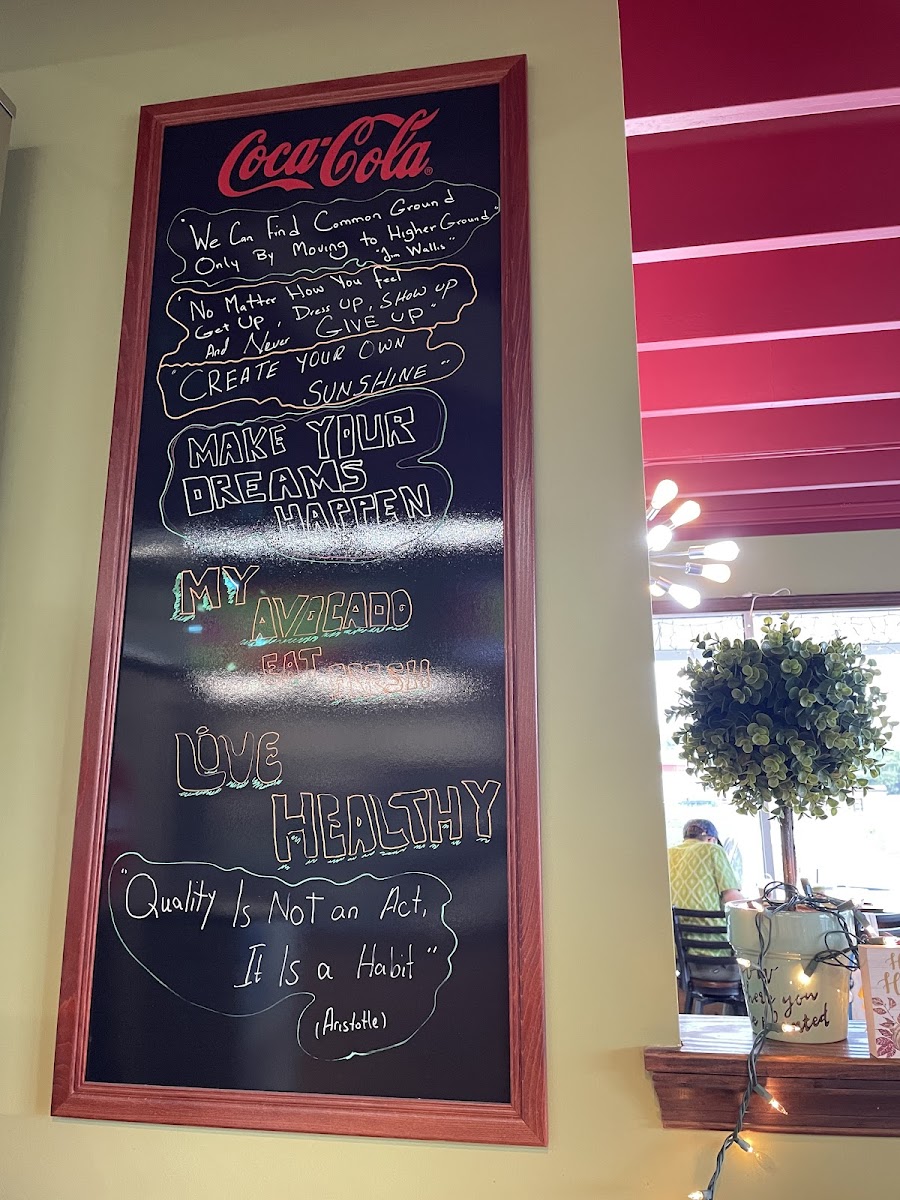 Coca-Cola®
"We Can Find Common Ground
Only By Moving to Higher Ground"
"Jim Wallis"
"No Matter How You Feel
Get Up, Dress Up, Show up
And Never GIVE UP"
"CREATE YOUR OWN
SUNSHINE"
MAKE YOUR
DREAMS
HAPPEN
MY
AVOCADO
EAT FRESH
LOVE
HEALTHY
"Quality Is Not an Act,
It Is a Habit"
(Aristotle)
you